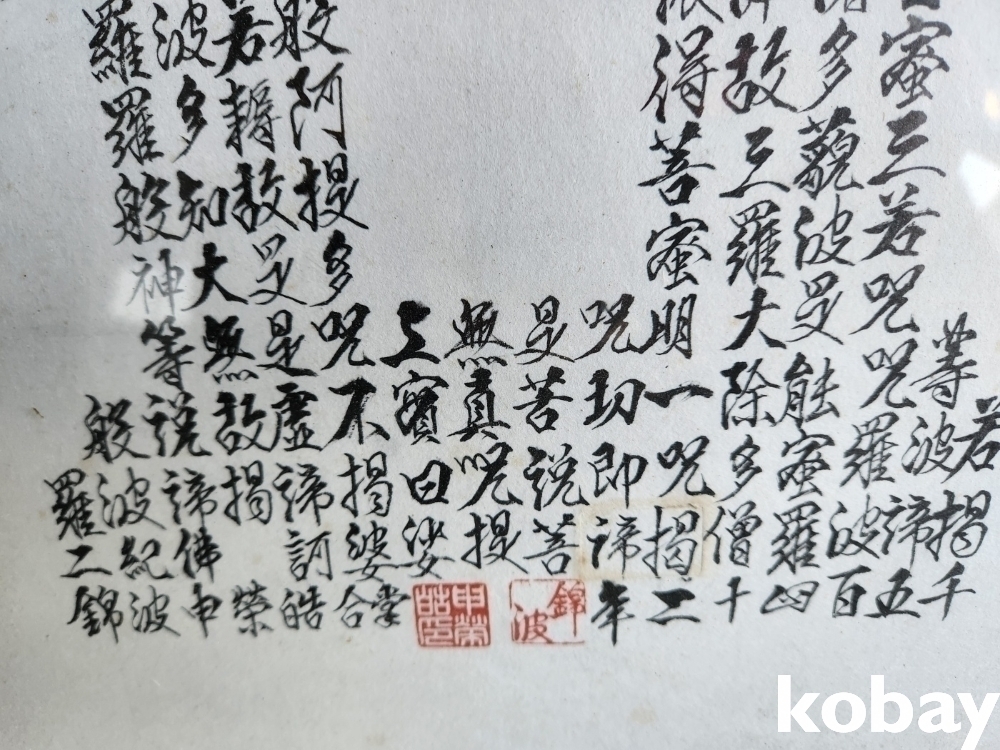 若
等波揭千
蜜三若咒咒羅諦五
多藐波是能蜜波百
羅四
故三羅大除多僧十
得菩蜜明一咒揭二
咒切即諦年
是苦說菩
無真咒提
上實曰娑掌
般阿提多咒不揭婆合
若耨故是是虛諦訶皓
波多知大無故揭榮
羅羅般神等說諦佛申
般波紀波
羅二錦
錦波
申榮皓印
kobay